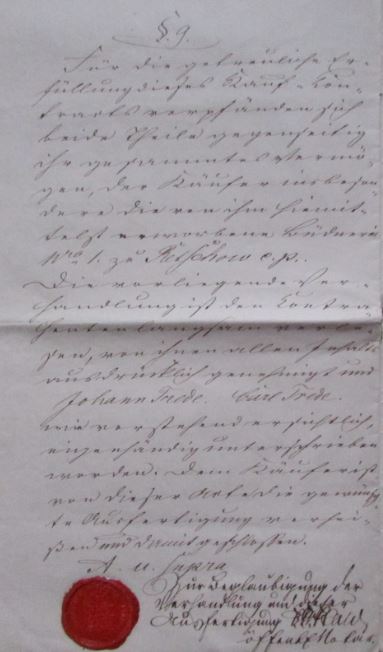 §. 9.
Für die getreuliche Er-
füllung dieses Kauf-Kon-
tracts verpfänden sich
beide Theile gegenseitig
ihr gesammtes Vermö-
gen, der Käufer insbeson-
dere die von ihm hiemit-
telst erworbene Büdnerei
Nro 1. zu Retschow c. p..
Die vorliegende Ver-
handlung ist den Kontra-
henten langsam verle-
sen, von ihnen allen Inhalts
ausdrücklich genehmigt und
Johann Frede. Carl Frede.
wie vorstehend ersichtlich,
eigenhändig unterschrieben
worden. Dem Käufer ist
von dieser Acte die gewünsch-
te Ausfertigung verhei-
ßen und damit geschlossen.
A. u. supra
Zur Beglaubigung der
Verhandlung und dieser
Ausfertigung
öffentl. Notar.